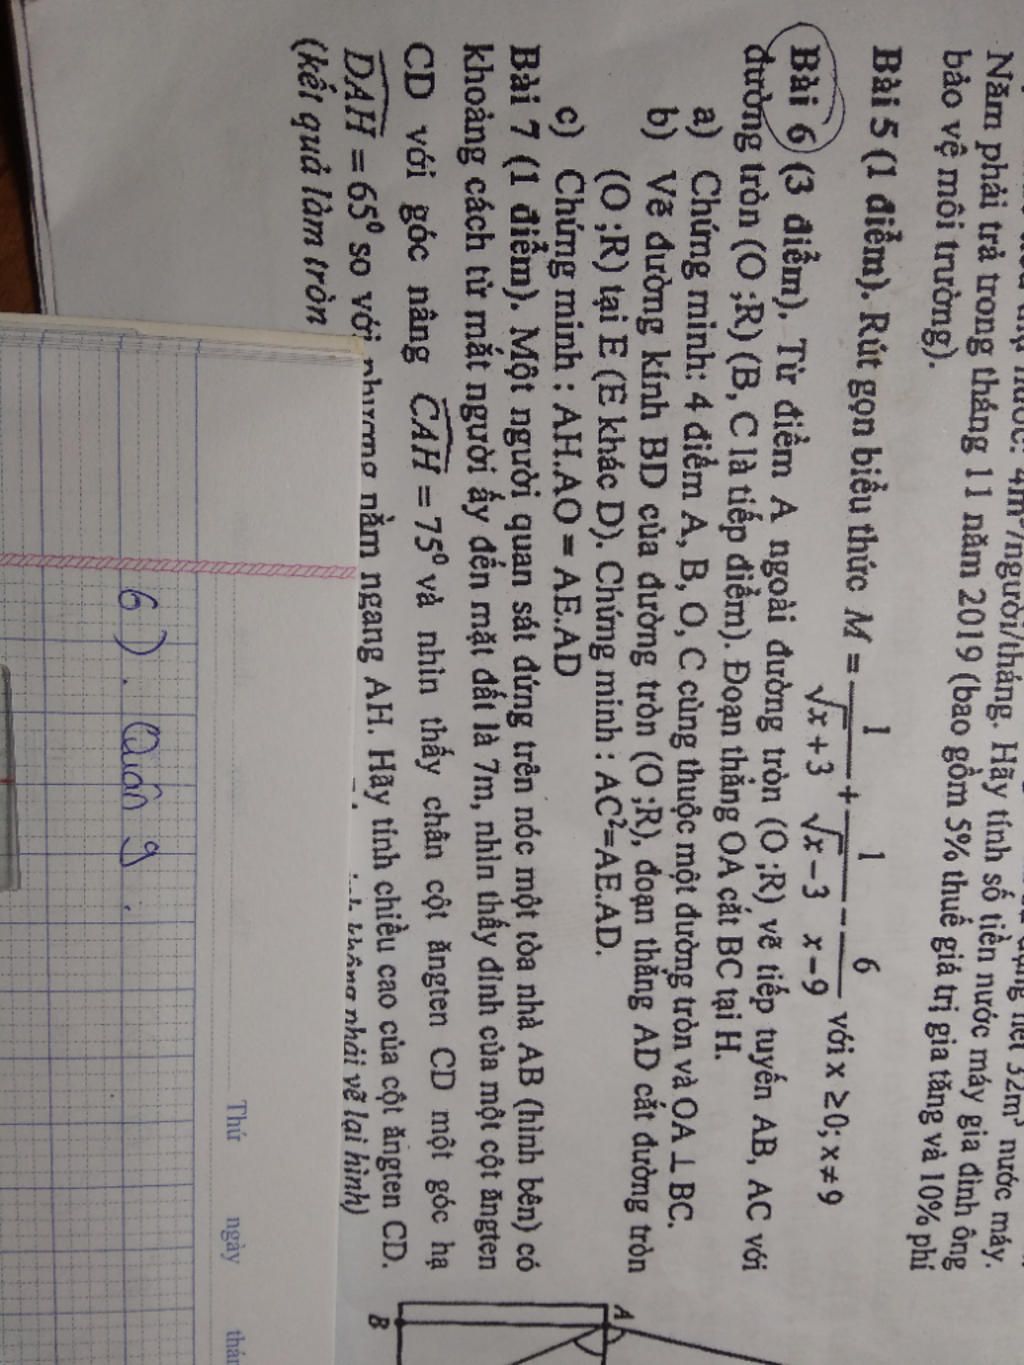 4m³/người/tháng. Hãy tính số tiền nước máy gia đình ông
Năm phải trả trong tháng 11 năm 2019 (bao gồm 5% thuế giá trị gia tăng và 10% phí
bảo vệ môi trường).
Bài 5 (1 điểm). Rút gọn biểu thức M = 1/(√x+3) + 1/(√x−3) − 6/(x−9) với x ≥ 0; x ≠ 9
Bài 6 (3 điểm). Từ điểm A ngoài đường tròn (O ;R) vẽ tiếp tuyến AB, AC với
đường tròn (O ;R) (B, C là tiếp điểm). Đoạn thẳng OA cắt BC tại H.
a) Chứng minh: 4 điểm A, B, O, C cùng thuộc một đường tròn và OA ⊥ BC.
b) Vẽ đường kính BD của đường tròn (O ;R), đoạn thẳng AD cắt đường tròn
(O ;R) tại E (E khác D). Chứng minh : AC²=AE.AD.
c) Chứng minh : AH.AO = AE.AD
Bài 7 (1 điểm). Một người quan sát đứng trên nóc một tòa nhà AB (hình bên) có
khoảng cách từ mắt người ấy đến mặt đất là 7m, nhìn thấy đỉnh của một cột ăngten
CD với góc nâng CAH = 75⁰ và nhìn thấy chân cột ăngten CD một góc hạ
DAH = 65⁰ so với phương nằm ngang AH. Hãy tính chiều cao của cột ăngten CD.
(kết quả làm tròn không phải vẽ lại hình)
A
B
Thứ ngày thán
6). Quận 9.